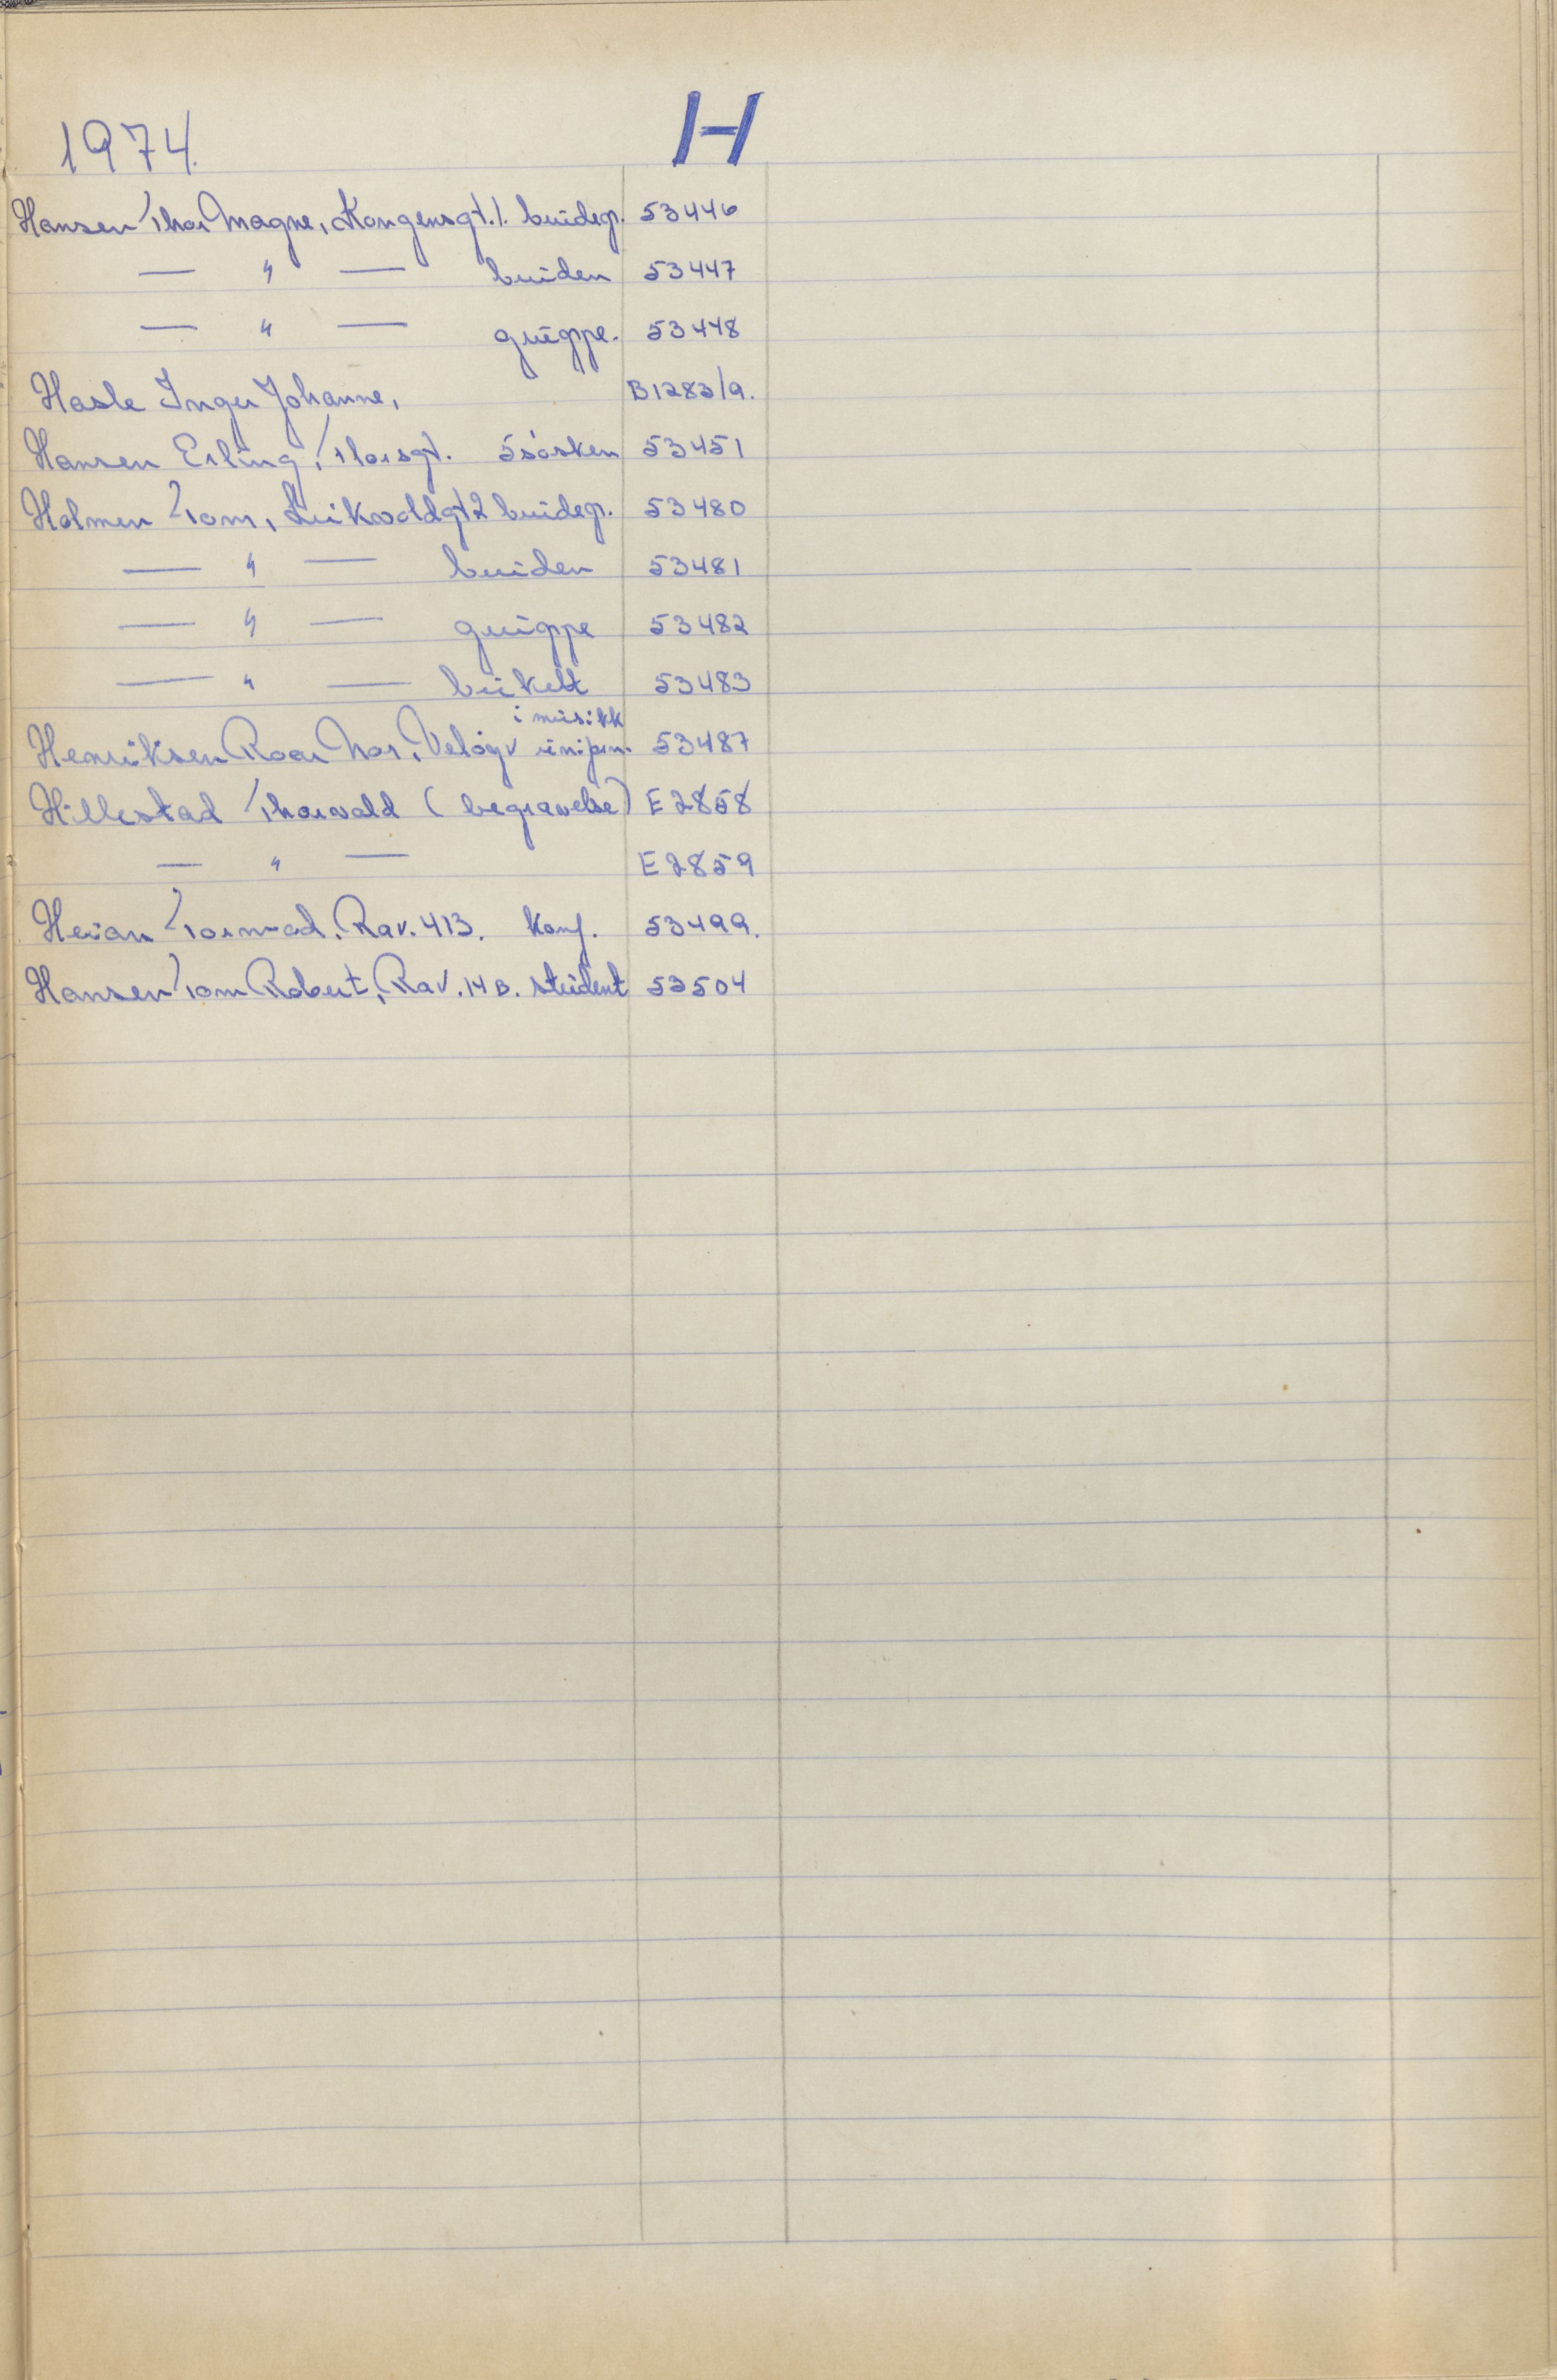 1974. H
Hansen Thor Magne, Kongensgt. 1. brudep. 53446
— " — bruden 53447
— " — gruppe. 53448
Hasle Inger Johanne, B1283/9.
Hansen Erling, Thorsgt. 5 søsken 53451
Holmen Tom, Leikvoldgt 2 brudep. 53480
— " — bruden 53481
— " — gruppe 53482
— " — bukett 53483
i musikk
Henriksen Roar Thor, Veløyv unipm. 53487
Hillestad Thorvald (begravelse) E2858
— " — E2859
Heian Tormod. Rav. 413. Konf. 53499.
Hansen Tom Robert, Rav. 14 B. student 53504